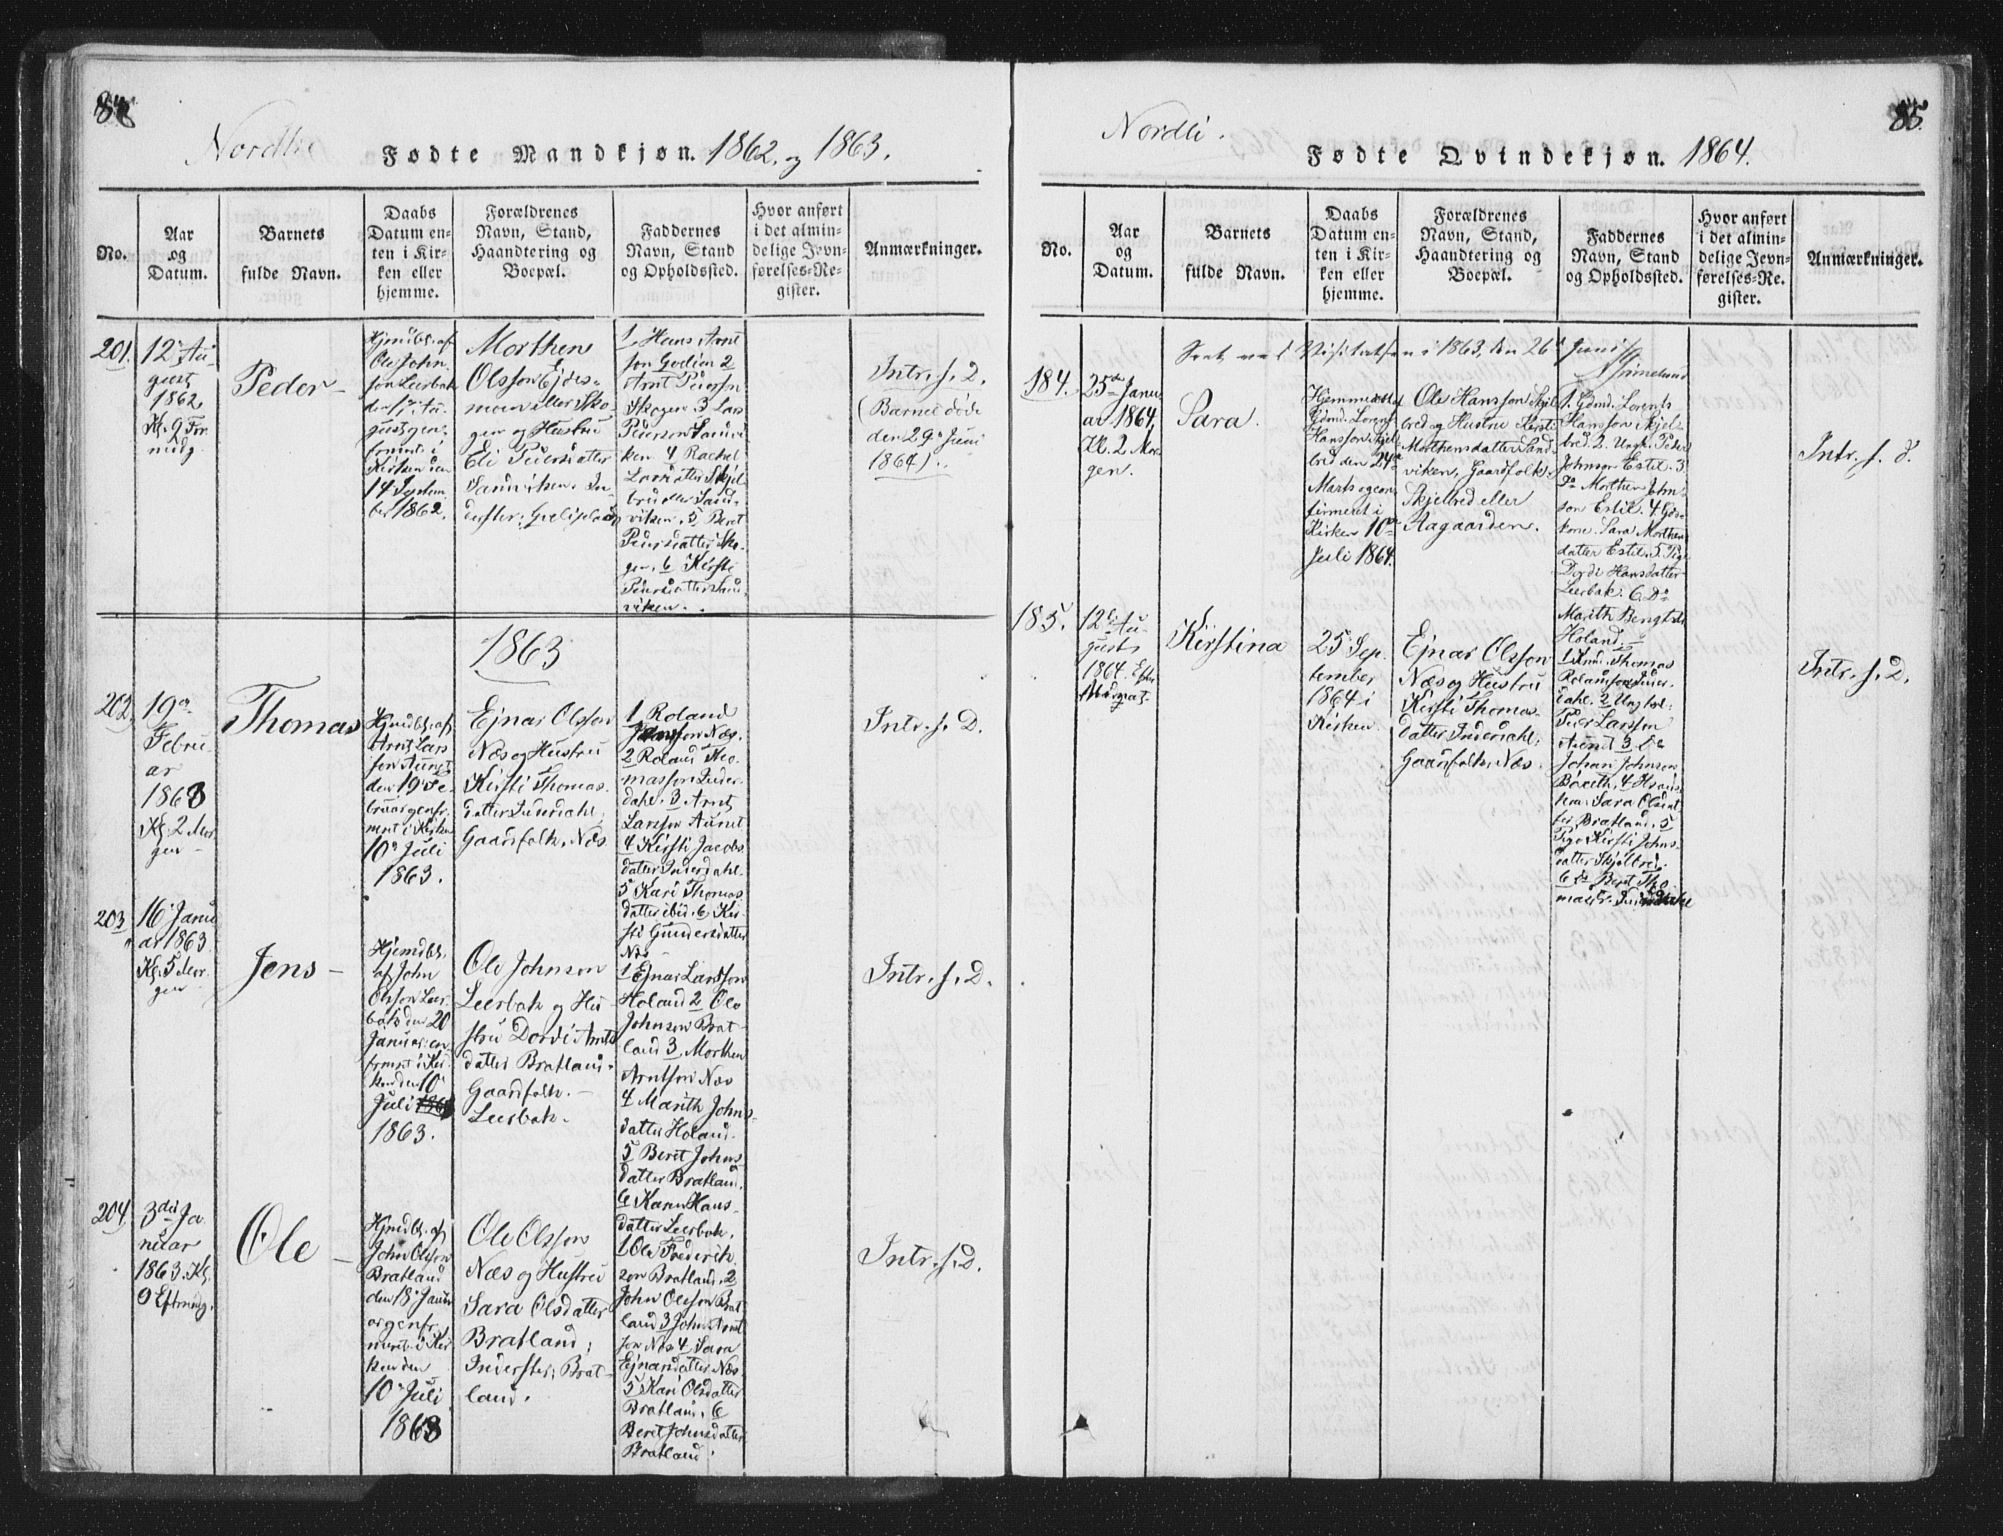 84
Nordlie
Fødte Mandkjøn. 1862. og 1863.
No.
Aar
og
Datum.
Barnets
fulde Navn.
Daabs
Datum en-
ten i Kir-
ken eller
hjemme.
Forældrenes
Navn, Stand,
Haandtering og
Boepæl.
Faddernes
Navn, Stand
og Opholdssted.
Hvor anført
i det almin-
delige Jevn-
førelses-Re-
gister.
Anmærkninger.
201.
12 Au
gust
1862,
Kl. 9 For
midg.
Peder
Hjmdbt. af
Ole John
son Leerbak
den 17 Au
gust
Kirken den
14 Septem
ber 1862.
Morthen
Olsson Ejdes-
moen eller Sko-
gen og Hustru
Eli Pedersdatter
Sandviken. In-
derster.
1 Hans Arnt
son 2
Arnt Pederson
Skogen 3 Lars
Pederson Sandvi
ken 4 Rachel
Larsdatter Skjel
bred eller Sand-
viken. 5 Beret
Pedersdatter Sko-
gen. 6 Kirsti
Pedersdatter Sand
viken.
Intr. f. D.
(Barnet døde
den 29 Juni
1864).
1863
202.
19
Febru-
ar
1863
Kl. 2 Mor
gen
Thomas
Hjmdbt. af
Arnt Lars
son Aunet
den 19 Fe-
bruar
ment i Kirken
10 Juli
1863.
Ejnar Olsson
Næs og Hustru
Kirsti Thomas-
datter Inderdahl,
Gaardfolk, Næs
1 Roland
Næs.
2 Roland Tho-
masson Inder-
dahl. 3 Arnt
Larsson Aunet
4 Kirsti Jacobs
datter Inderdahl.
5 Kari Thomas
datter ibid. 6 Kir-
sti Gundersdatter
Næs
Intr. f. D.
203
16 Janu
ar 1863
Kl. 5 Mor
gen
Jens
Hjemdbt.
af John
Olsson Leer-
bak den 20
Januar, con-
firmert i Kir-
ken den 10
Juli 1863
1863.
Ole Johnson
Leerbak og Hu-
stru Dordi Arnts
datter Bratland.
Gaardfolk.
Leerbak.
1 Ejnar Larsson
Holand 2 Ole
Johnson Brat-
land 3. Morthen
Arntson Næs
4 Marith Johns-
datter Holand.
5 Beret Johns-
datter Bratland,
6 Karen Hans-
datter Leerbak.
Intr. f. D.
204.
3die Ja
nuar
1863. Kl.
9 Eftmidg.
Ole
Hjmdbt. af
John Olsson
Bratland
den 18 Janu
ar
meret i Kir
ken den
10 Juli
1863
Ole Olsson
Næs og Hustru
Sara Olsdatter
Bratland;
Inderster; Brat-
land.
1 Ole Frederik
son Bratland. 2
John Olsson Brat-
land 3 John Arnt
son Næs 4. Sara
Ejnarsdatter Næs
5 Kari Olsdatter
Bratland, 6
Beret Johnsdatter
Bratland.
Intr. f. D.
85.
Nordli.
Fødte Qvindekjøn. 1864.
No.
Aar
og
Datum.
Barnets
fulde Navn.
Daabs
Datum en-
ten i Kir-
ken eller
hjemme.
Forældrenes
Navn, Stand,
Haandtering og
Boepæl.
Faddernes
Navn, Stand
og Opholdssted.
Hvor anført
i det almin-
delige Jevn-
førelses-Re-
gister.
Anmærkninger.
Seet ved Visitatsen i 1863, den 26 Juni
184.
25de Janu
ar 1864,
Kl. 2 Mor
gen.
Sara.
Hjemmedbt
Gdmd. Lorents
Hansson Skjel
bred den 24de
Marts og con-
firmeret i
Kirken 10de
Juli 1864.
Ole Hansson Skjel
bred og Hustru Kirsti
Morthensdatter Sand-
viken, Gaardfolk.
Skjelbred eller
Aagaarden.
1. Gdmd. Lorents
Hansson Skjel-
bred. 2. Ungk. Peder
Johnson Estil. 3.
Do Morthen John-
son Estil. 4 Gdm-
kone. Sara Morthens
datter Estil. 5. Pige
Dordi Hansdatter
Leerbak. 6. Do
Marith Bengts
Holand.
Intr. f. D.
185.
12te Au-
gust
1864. Efter
Midnat.
Kirstina
25 Sep
tember
1864 i
Kirken.
Ejnar Olsson
Næs og Hustru
Kirsti Thomas-
datter Inderdahl;
Gaardfolk, Næs.
Thomas
Rolandson Inder-
dahl. 2 Ungkarl.
Peder Larsson
Aunet 3 Do
Johan Johnson
4
Sara Olsdat
ter Bratland. 5
Pige Kirsti Johns-
datter Skjelbred.
6 Do Beret Tho
masdr. Inderdahl
Intr. f. D.